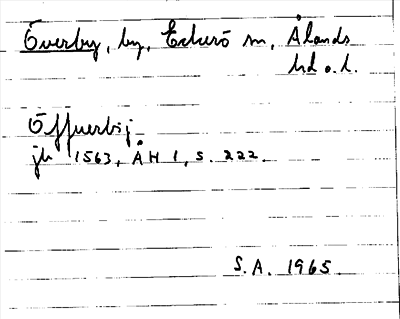 Överby, by, Eckerö sn, Ålands
hd o. l.
Öffuerbij
jb 1563, ÅH 1, s. 222.
S.A. 1965.